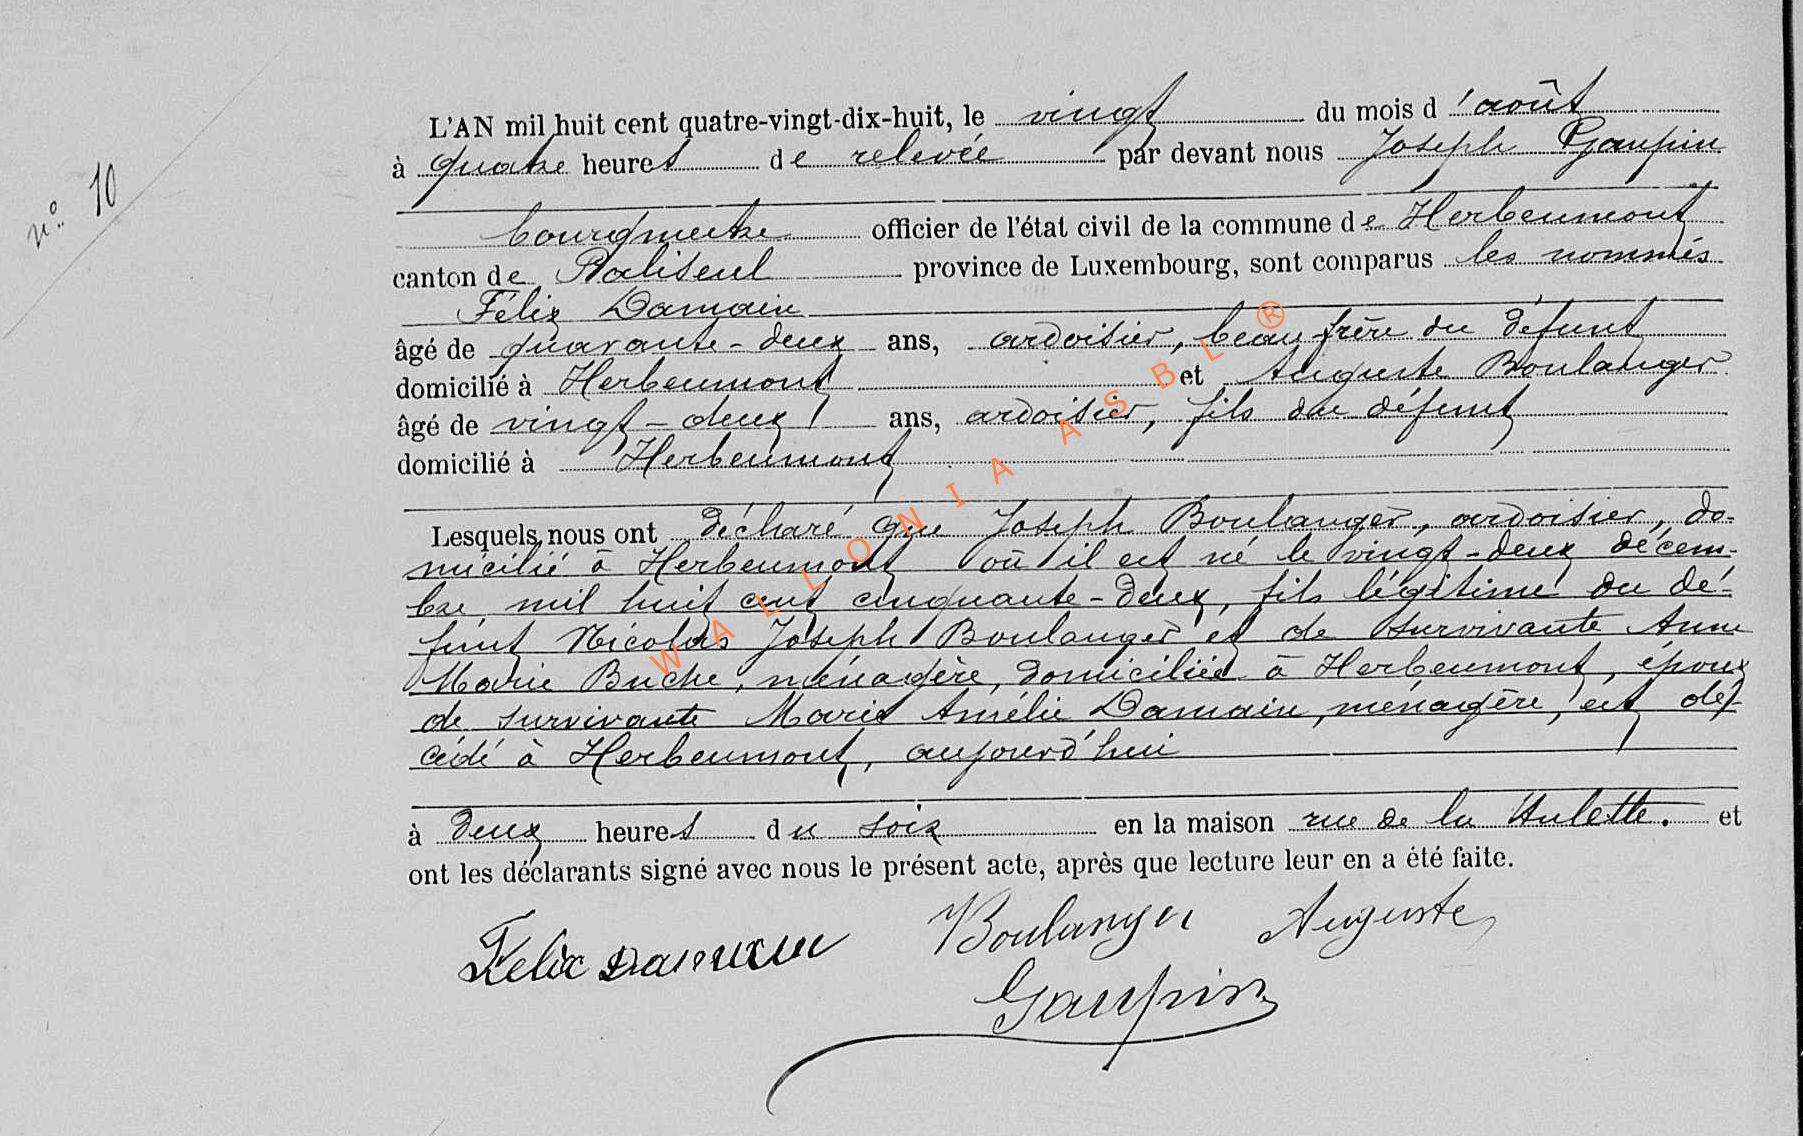 n° 10
L'AN mil huit cent quatre-vingt-dix-huit, le vingt du mois d'août
à quatre heures de relevée par devant nous Joseph Gaupin
bourgmestre officier de l'état civil de la commune de Herbeumont
canton de Paliseul province de Luxembourg, sont comparus les nommés
Félix Damain
âgé de quarante-deux ans, ardoisier, beau-frère du défunt
domicilié à Herbeumont et Auguste Boulanger
âgé de vingt-deux ans, ardoisier, fils du défunt
domicilié à Herbeumont
Lesquels nous ont déclaré que Joseph Boulanger, ardoisier, do-
micilié à Herbeumont où il est né le vingt-deux décem-
bre mil huit cent cinquante-deux, fils légitime du dé-
funt Nicolas Joseph Boulanger et de survivante Anne
Marie Buche, ménagère, domiciliée à Herbeumont, époux
de survivante Marie Amélie Damain, ménagère, est dé-
cédé à Herbeumont, aujourd'hui
à deux heures du soir en la maison rue de la Hulette. et
ont les déclarants signé avec nous le présent acte, après que lecture leur en a été faite.
Felix Damain Boulanger Auguste
Gaupin
WALLONIA ASBL ®